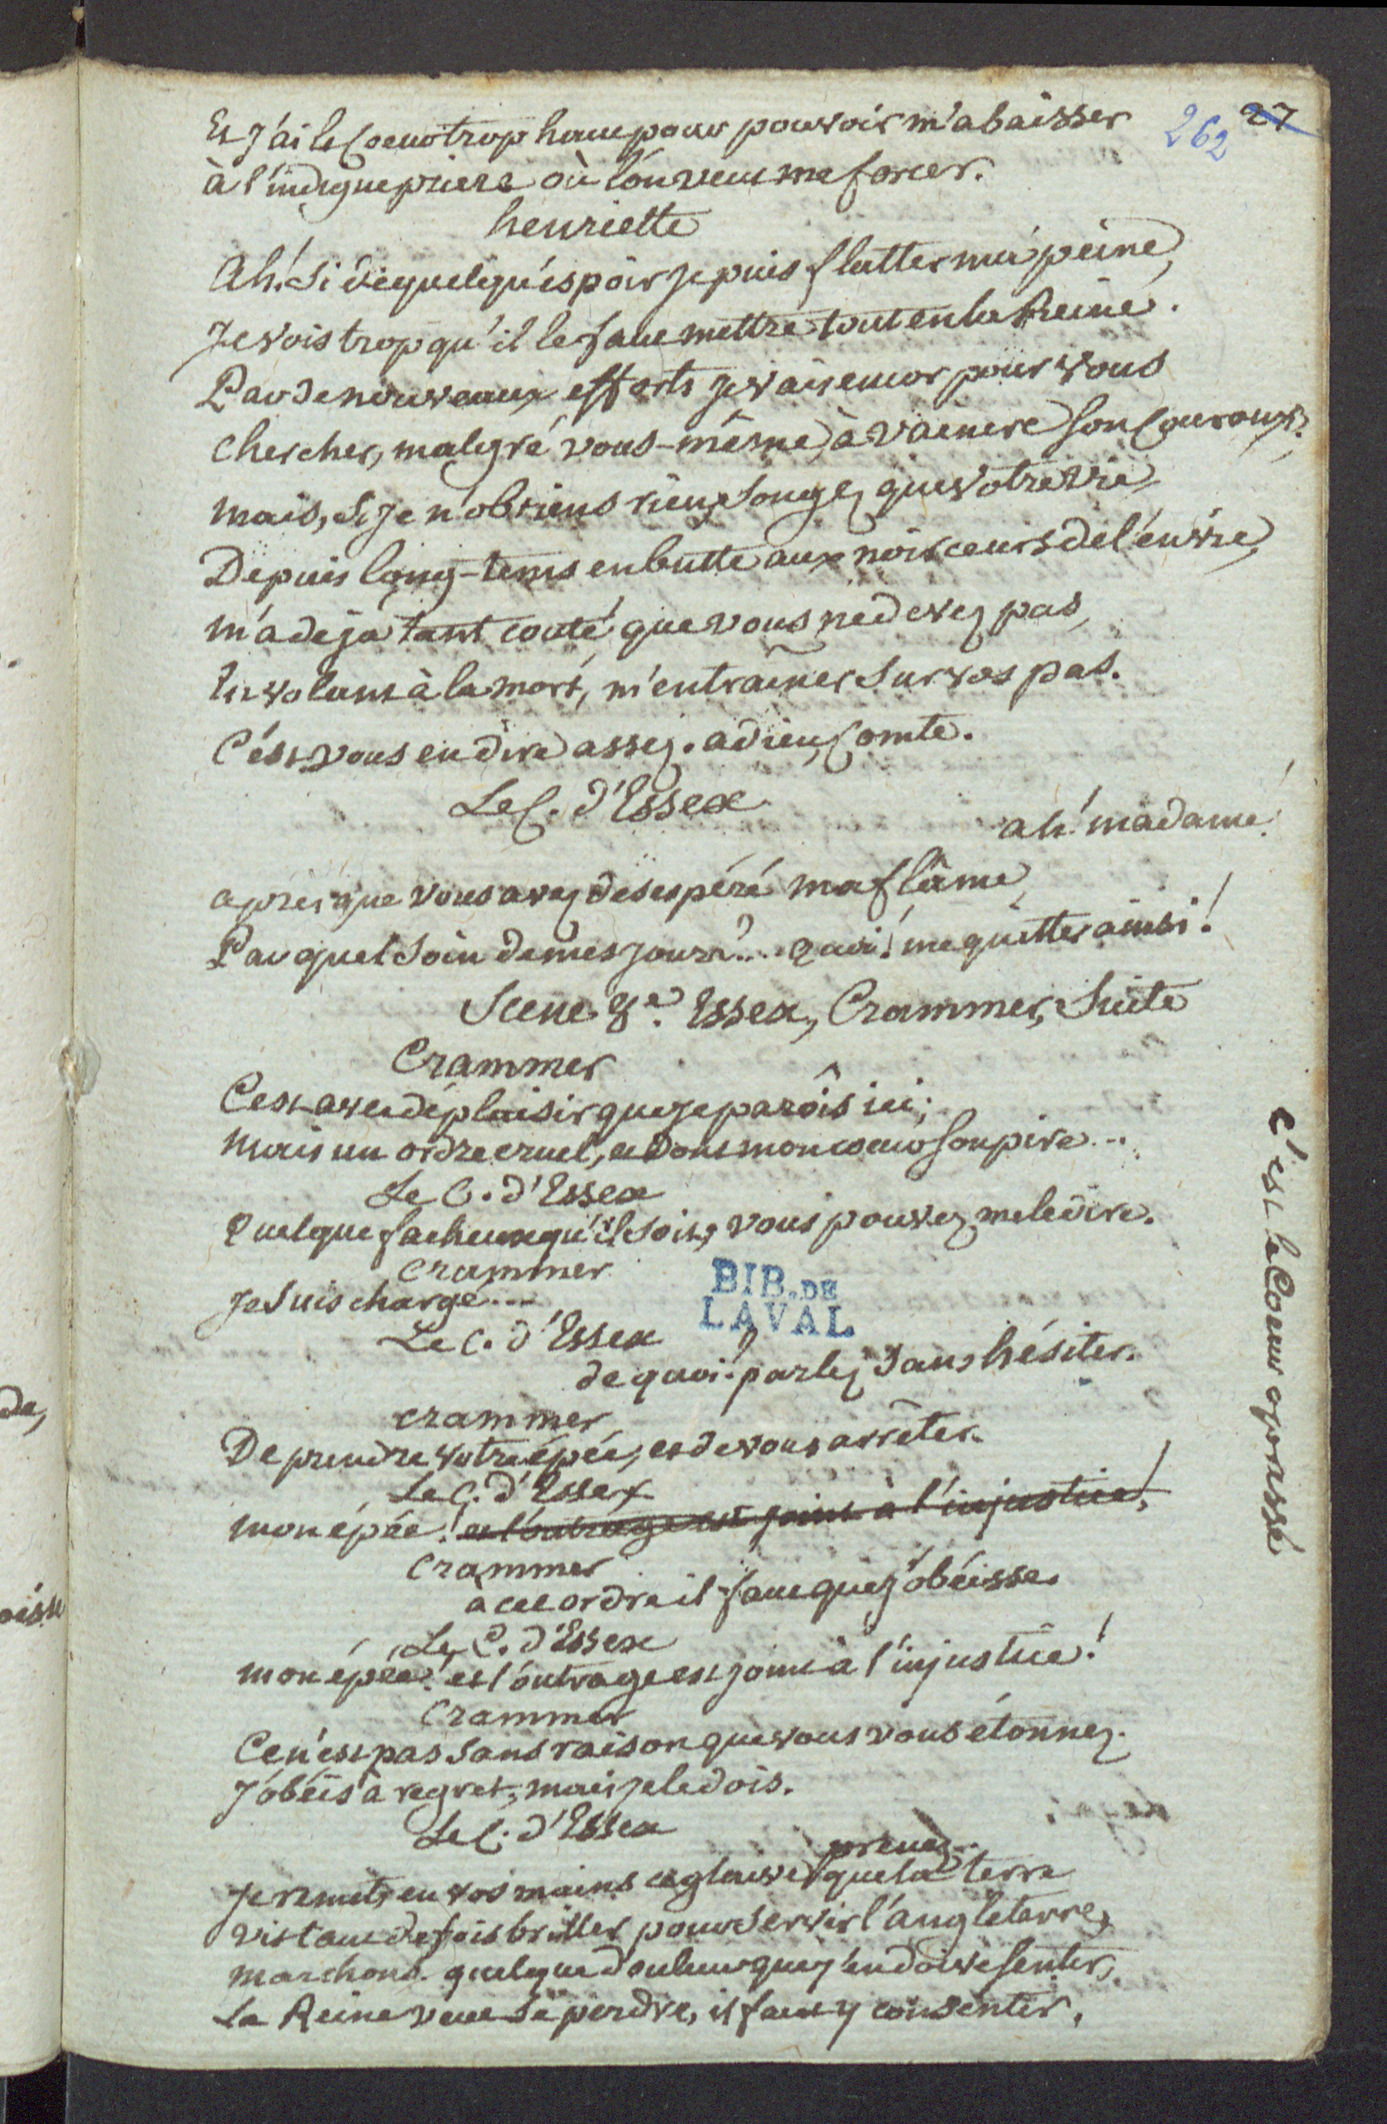 262 27
Et J'ai le Coeur trop haut pour pouvoir m'abaisser
à l'indigne priere où l'on veut me forcer.
henriette
Ah! Si de quelqu'espoir je puis flatter ma peine,
Je vois trop qu'il le faut mettre tout en la Reine.
Par de nouveaux efforts je vais encor pour vous
chercher, malgré vous-même, à vaincre son Couroux;
mais, si je n'obtiens rien, songez que votre vie,
Depuis long-tems en butte aux noirceurs de l'envie,
m'a deja tant couté que vous ne devez pas,
En volant à la mort, m'entraîner sur vos pas.
C'est vous en dire assez. adieu, Comte.
Le C. d'Essex
ah! madame!
après que vous avez desespéré ma flâme,
Par quel soin de mes jours?... quoi! me quitter ainsi!
Scene 8e. Essex, Crammer, Suite
Crammer
C'est avec déplaisir que je parois ici;
mais un ordre cruel, et dont mon coeur soupire...
Le C. d'Essex
Quelque facheux qu'il soit, vous pouvez me le dire.
crammer
Je suis chargé...
BIB. DE
LAVAL
Le C. d'Essex
de quoi? parlez sans hésiter.
crammer
De prendre votre épée, et de vous arrêter.
Le C. d'Essex
mon épée! et l'outrage est joint à l'injustice!
Crammer
à cet ordre il faut que j'obéisse.
Le C. d'Essex
mon épée! et l'outrage est joint à l'injustice!
Crammer
Ce n'est pas sans raison que vous vous étonnez.
J'obéis à regret, mais je le dois.
Le C. d'Essex
prenez.
Je remets en vos mains ce glaive que la terre
vit tant de fois briller pour servir l'angleterre,
marchons. quelque douleur que j'en doive sentir,
La Reine veut se perdre, il faut y consentir.
c'est le Coeur oppressé